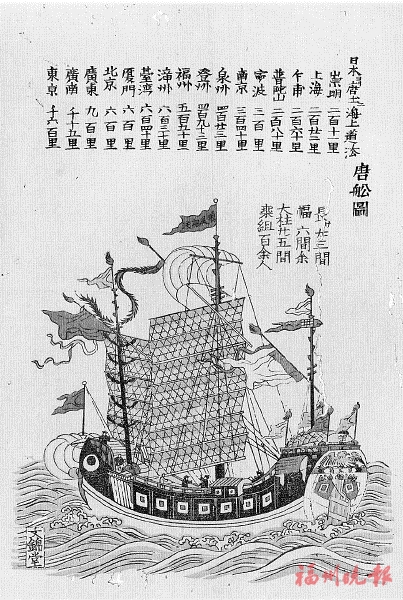 日本ヨリ唐土海上道法
崇明 二百十里
上海 二百廿三里
乍甫 二百六十里
普陀山 二百八十里
寧波 三百里
南京 三百四十里
泉州 四百廿三里
登州 四百九十三里
福州 五百五十里
漳州 六百三十里
臺湾 六百四十里
厦門 六百里
北京 六百里
廣東 九百里
廣南 千十五里
東京 千六百里
唐舩圖
長サ廿三間
幅 六間余
大柱廿五間
乗組百余人
大錦堂
福州晚报